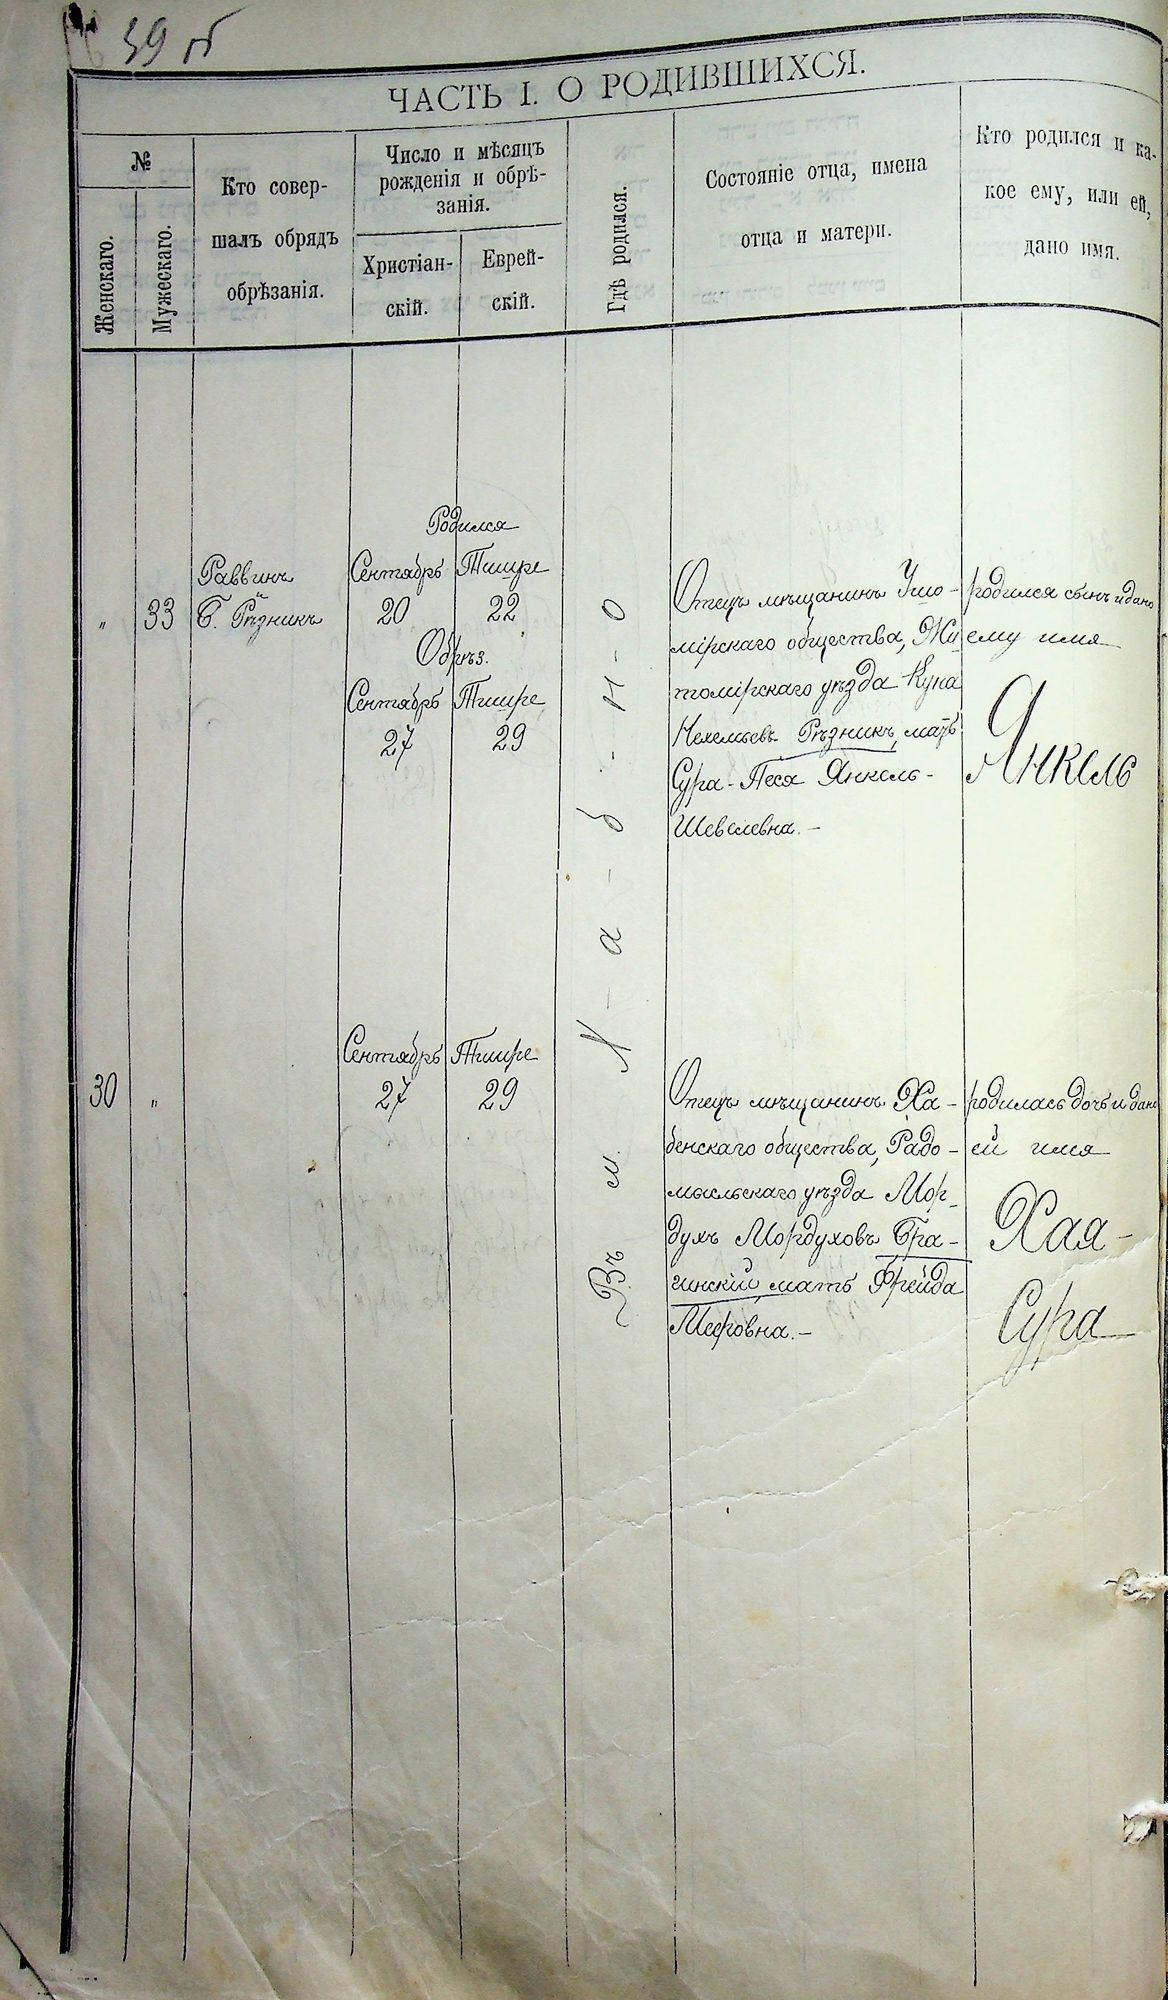 59 об
ЧАСТЬ I. О РОДИВШИХСЯ.
№
Женскаго.
Мужескаго.
Кто совер-
шалъ обрядъ
обрѣзанія.
Число и мѣсяцъ
рожденія и обрѣ-
занія.
Христіан-
скій.
Еврей-
скій.
Гдѣ родился.
Состояніе отца, имена
отца и матери.
Кто родился и ка-
кое ему, или ей,
дано имя.
„
33
Раввинъ
Б. Рѣзникъ
Родился
Сентябрь Тишре
20 22
Обрѣз.
Сентябрь Тишре
27 29
Въ м. Х-а-б-н-о
Отецъ мѣщанинъ Ушо-
мірскаго общества, Жи
томірскаго уѣзда Куна
Нехемьевъ Рѣзникъ, мать
Сура-Песя Янкель-
Шевелевна.-
родился сынъ и дано
ему имя
Янкель
30
„
Сентябрь Тишре
27 29
Отецъ мѣщанинъ Ха-
бенскаго общества, Радо-
мысльскаго уѣзда Мор-
духъ Мордуховъ Бра-
гинскій, мать Фрейда
Мееровна.-
родилась дочь и дано
ей имя
Хая-
Сура